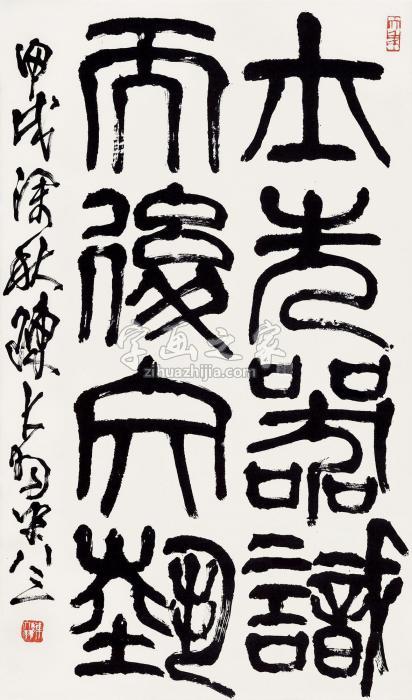 士先器識
而後文藝
甲戌深秋陳大羽年八三
字画之家
zihuazhijia.com